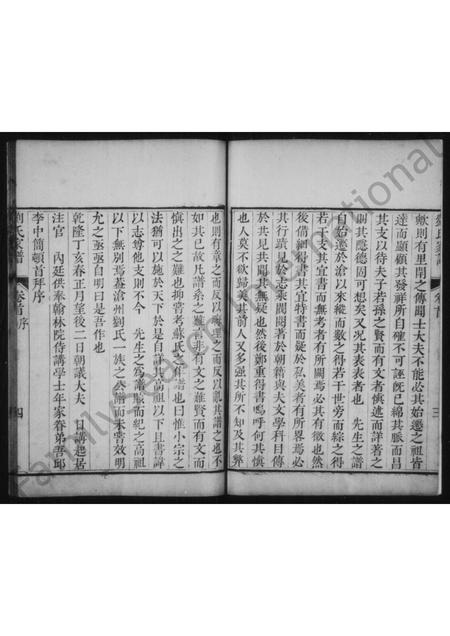 歟則有里閈之傳聞士大夫不能必其始遷之祖皆
達而顯顧其發祥所自確不可誣既已綿其脈而昌
其支以待夫子若孫之賢而有文者慎述而詳著之
嗣其隱德固可想矣又况其表表者也　先生之譜
自始遷於滄以來縱而數之得若干世旁而綜之得
若干人其宜書而無考者有所闕焉必其有徵也然
後備細得書其宜特書而疑於私美者有所畧焉必
其行蹟見於志乘閥閱著於朝籍與夫文學科目傳
於共見共聞其無疑也然後鄭重得書嗚呼何其慎
也人莫不欲歸美其前人又多强其所不知及其弊
也則有章之而反以晦理之而反以亂其譜之也不
如其已故凡譜系之難者非有文之難賢而有文而
慎出之之難也抑嘗考蘇氏之作譜也曰惟小宗之
法猶可以施於天下於是自詳其高祖以下且書諱
以志尊他支則不今　先生之為譜斷而紀之高祖
以下無別焉蓋滄州劉氏一族之公譜而未嘗效明
允之亟亟自明曰是吾作也
乾隆丁亥春正月望後二日朝議大夫　日講起居
注官　內廷供奉翰林院侍講學士年家眷弟吾邱
李中簡頓首拜序
劉氏家譜　卷首　序　四
劉氏家譜　卷首　三
FamilySearch International